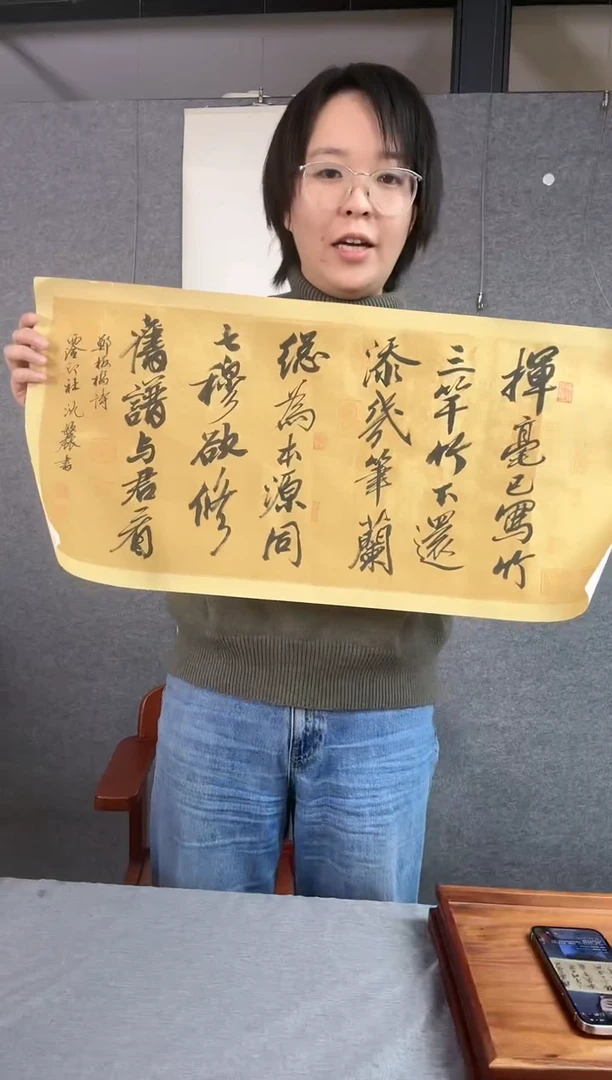 揮毫已寫竹
三竿竹下還
添幾筆蘭
總為本源同
七穆欲修
舊譜与君看
鄭板橋詩
印社沈書